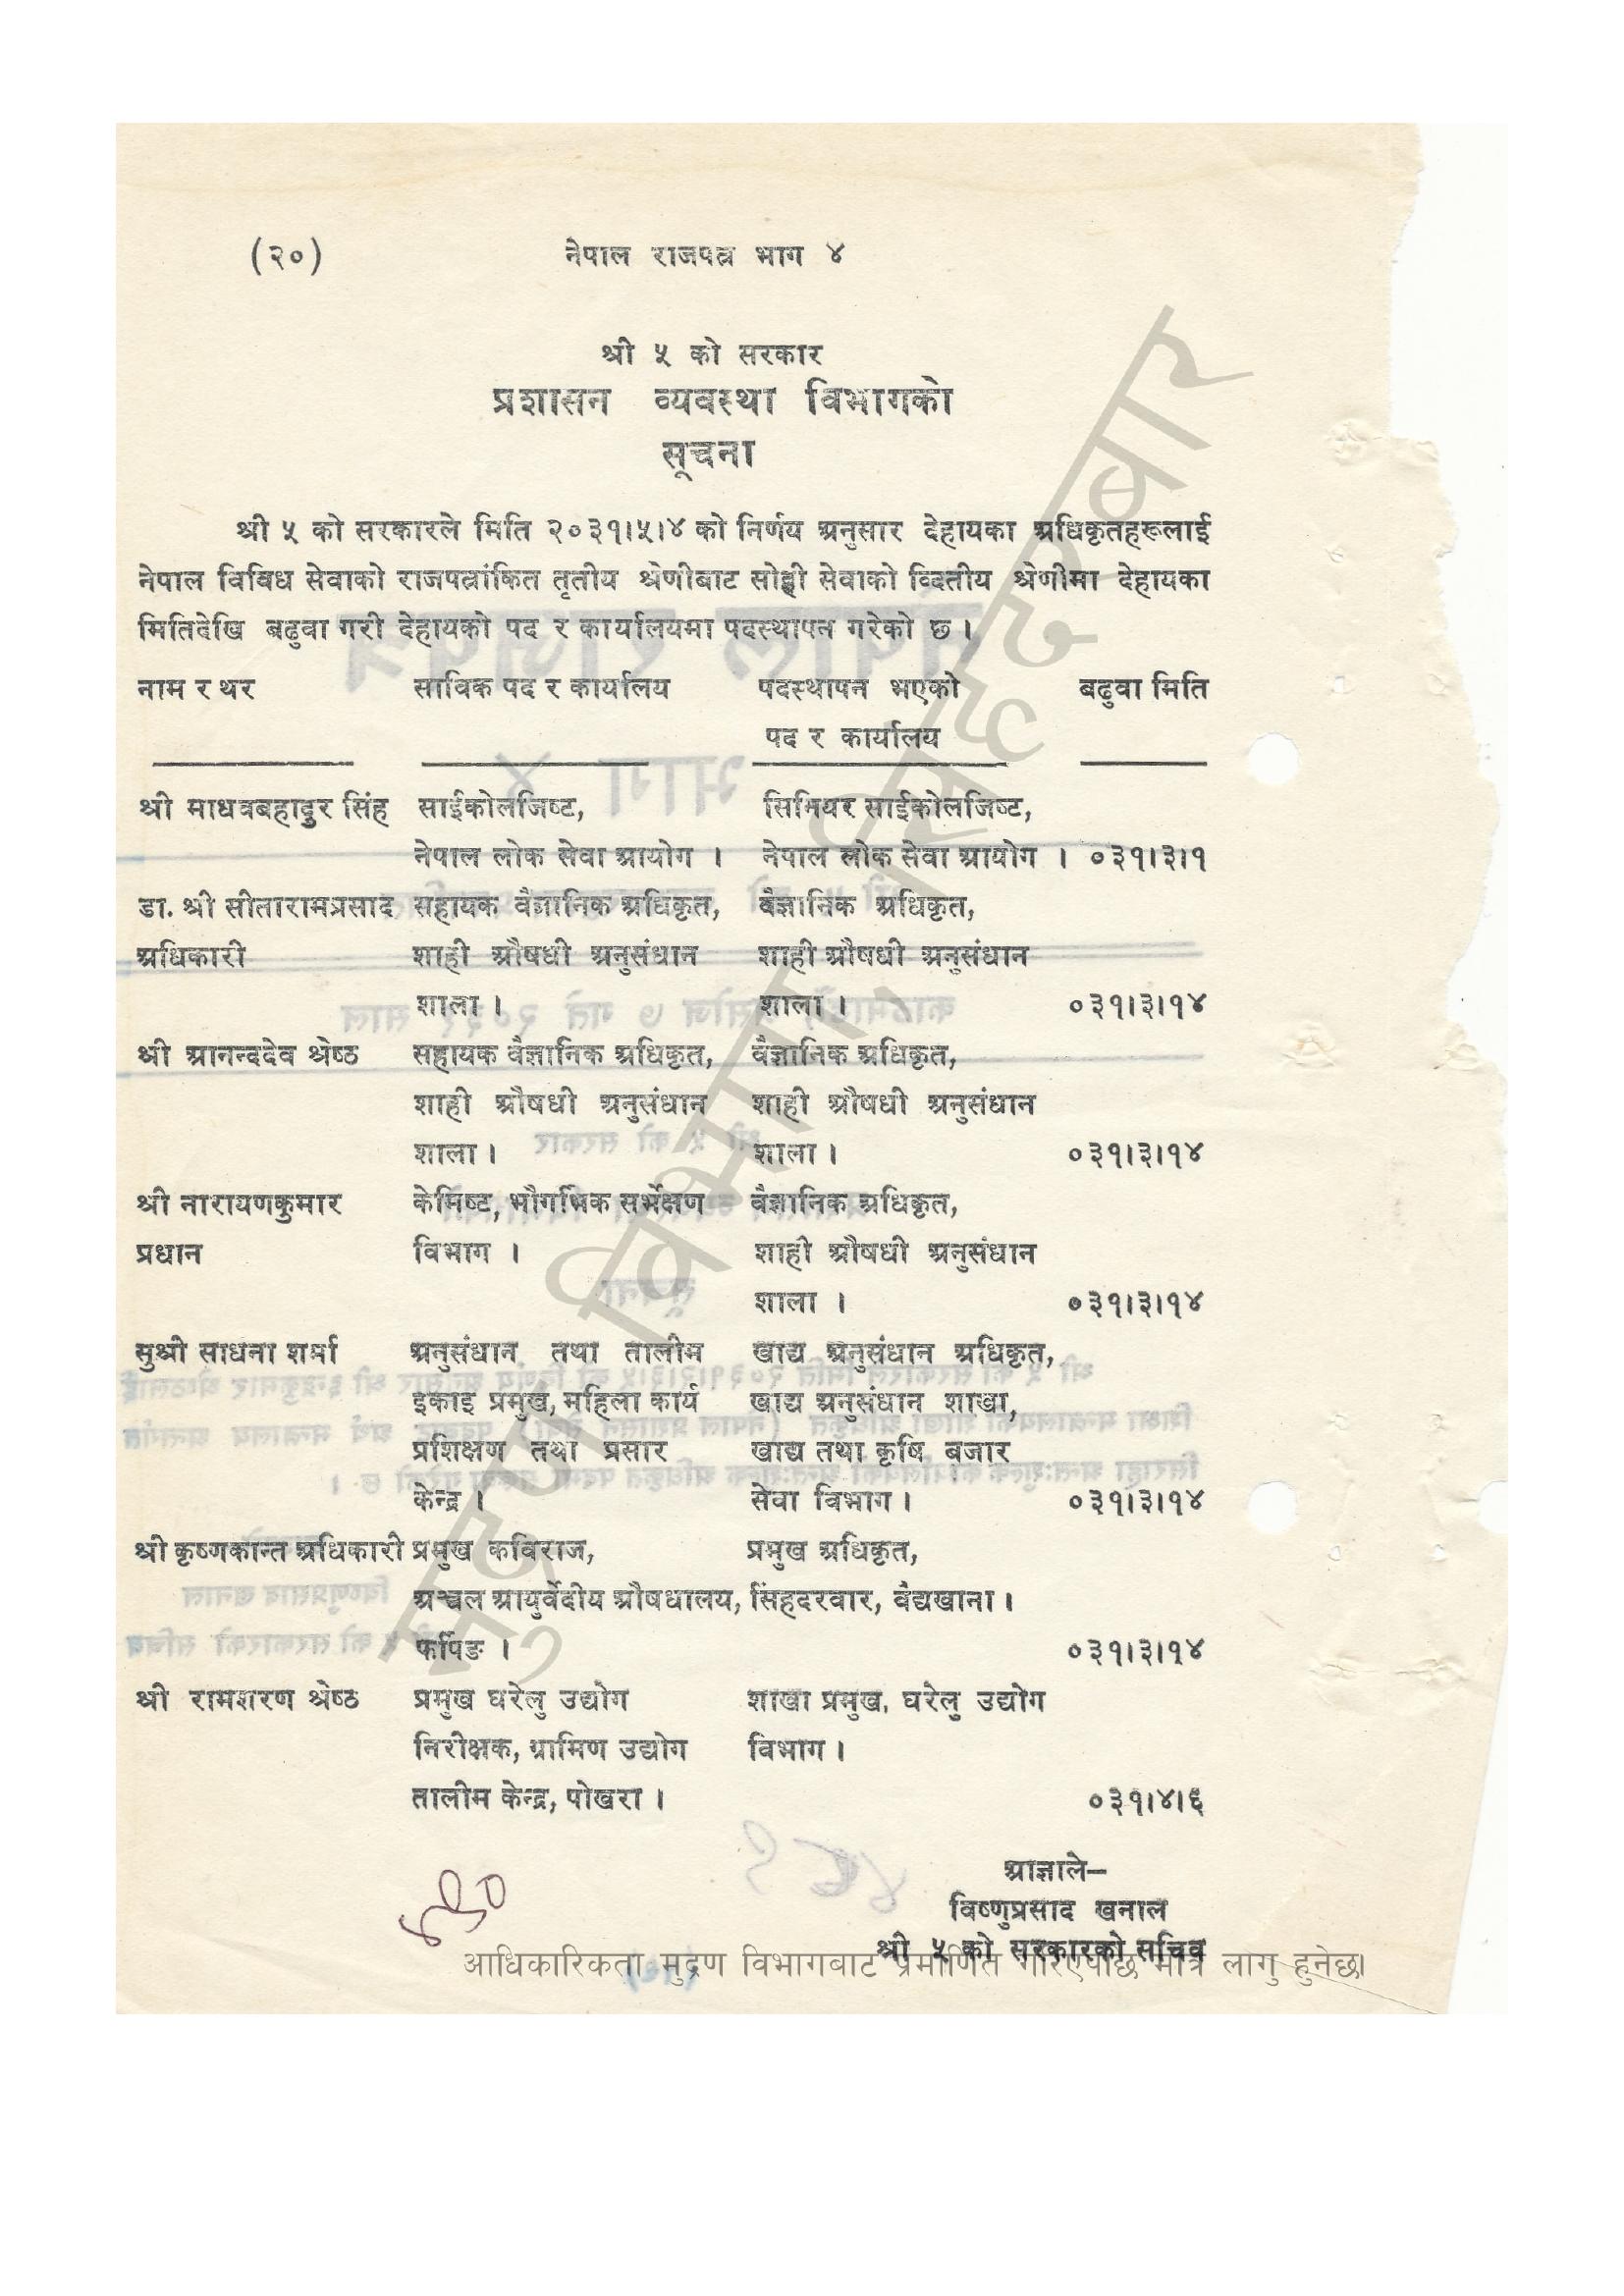 (२०) नेपाल राजपत्र भाग ४
श्री ५ को सरकार
प्रशासन व्यवस्था विभागको
सूचना
श्री ५ को सरकारले मिति २०३१।५।४ को निर्णय अनुसार देहायका अधिकृतहरूलाई
नेपाल विविध सेवाको राजपत्रांकित तृतीय श्रेणीबाट सोही सेवाको द्वितीय श्रेणीमा देहायका
मितिदेखि बढुवा गरी देहायको पद र कार्यालयमा पदस्थापन गरेको छ ।
नाम र थर साविक पद र कार्यालय पदस्थापन भएको बढुवा मिति
पद र कार्यालय
श्री माधवबहादुर सिंह साईकोलजिष्ट, सिनियर साईकोलजिष्ट,
नेपाल लोक सेवा आयोग । नेपाल लोक सेवा आयोग । ०३१।३।१
डा. श्री सीतारामप्रसाद सहायक वैज्ञानिक अधिकृत, वैज्ञानिक अधिकृत,
अधिकारी शाही औषधी अनुसंधान शाही औषधी अनुसंधान
शाला । शाला । ०३१।३।१४
श्री आनन्ददेव श्रेष्ठ सहायक वैज्ञानिक अधिकृत, वैज्ञानिक अधिकृत,
शाही औषधी अनुसंधान शाही औषधी अनुसंधान
शाला । शाला । ०३१।३।१४
श्री नारायणकुमार केमिष्ट, भौगर्भिक सर्भेक्षण वैज्ञानिक अधिकृत,
प्रधान विभाग । शाही औषधी अनुसंधान
शाला । ०३१।३।१४
सुश्री साधना शर्मा अनुसंधान तथा तालीम खाद्य अनुसंधान अधिकृत,
इकाइ प्रमुख, महिला कार्य खाद्य अनुसंधान शाखा,
प्रशिक्षण तथा प्रसार खाद्य तथा कृषि बजार
केन्द्र । सेवा विभाग । ०३१।३।१४
श्री कृष्णकान्त अधिकारी प्रमुख कविराज, प्रमुख अधिकृत,
अञ्चल आयुर्वेदीय औषधालय, सिंहदरवार, वैद्यखाना ।
फर्पिङ । ०३१।३।१४
श्री रामशरण श्रेष्ठ प्रमुख घरेलु उद्योग शाखा प्रमुख, घरेलु उद्योग
निरीक्षक, ग्रामिण उद्योग विभाग ।
तालीम केन्द्र, पोखरा । ०३१।४।६
आज्ञाले—
विष्णुप्रसाद खनाल
श्री ५ को सरकारको सचिव
आधिकारिकता मुद्रण विभागबाट प्रमाणित गरिएपछि मात्र लागु हुनेछ।
मुद्रण विभाग, सिंहदरबार